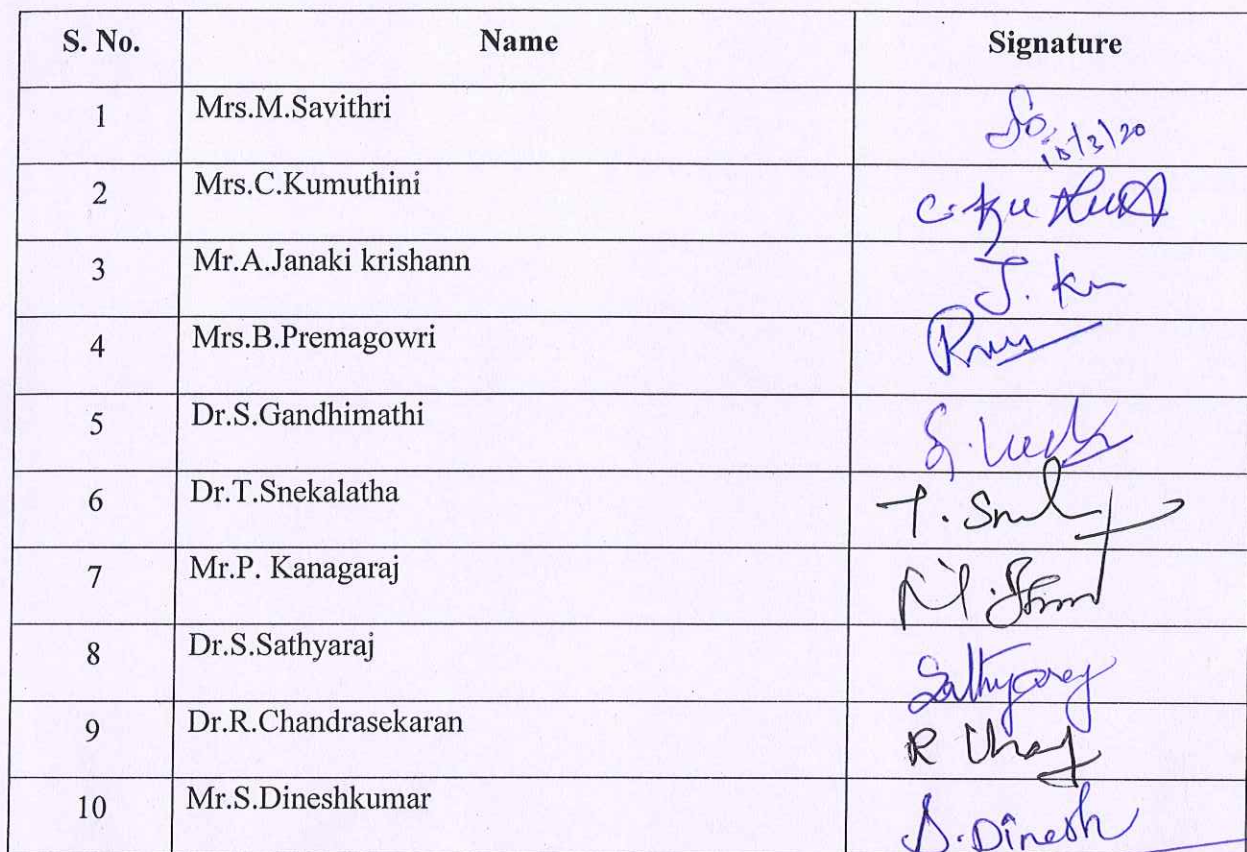 S. No. Name Signature
1 Mrs.M.Savithri
2 Mrs.C.Kumuthini
3 Mr.A.Janaki krishann
4 Mrs.B.Premagowri
5 Dr.S.Gandhimathi
6 Dr.T.Snekalatha
7 Mr.P. Kanagaraj
8 Dr.S.Sathyaraj Sathyaraj
9 Dr.R.Chandrasekaran
10 Mr.S.Dineshkumar S.Dinesh